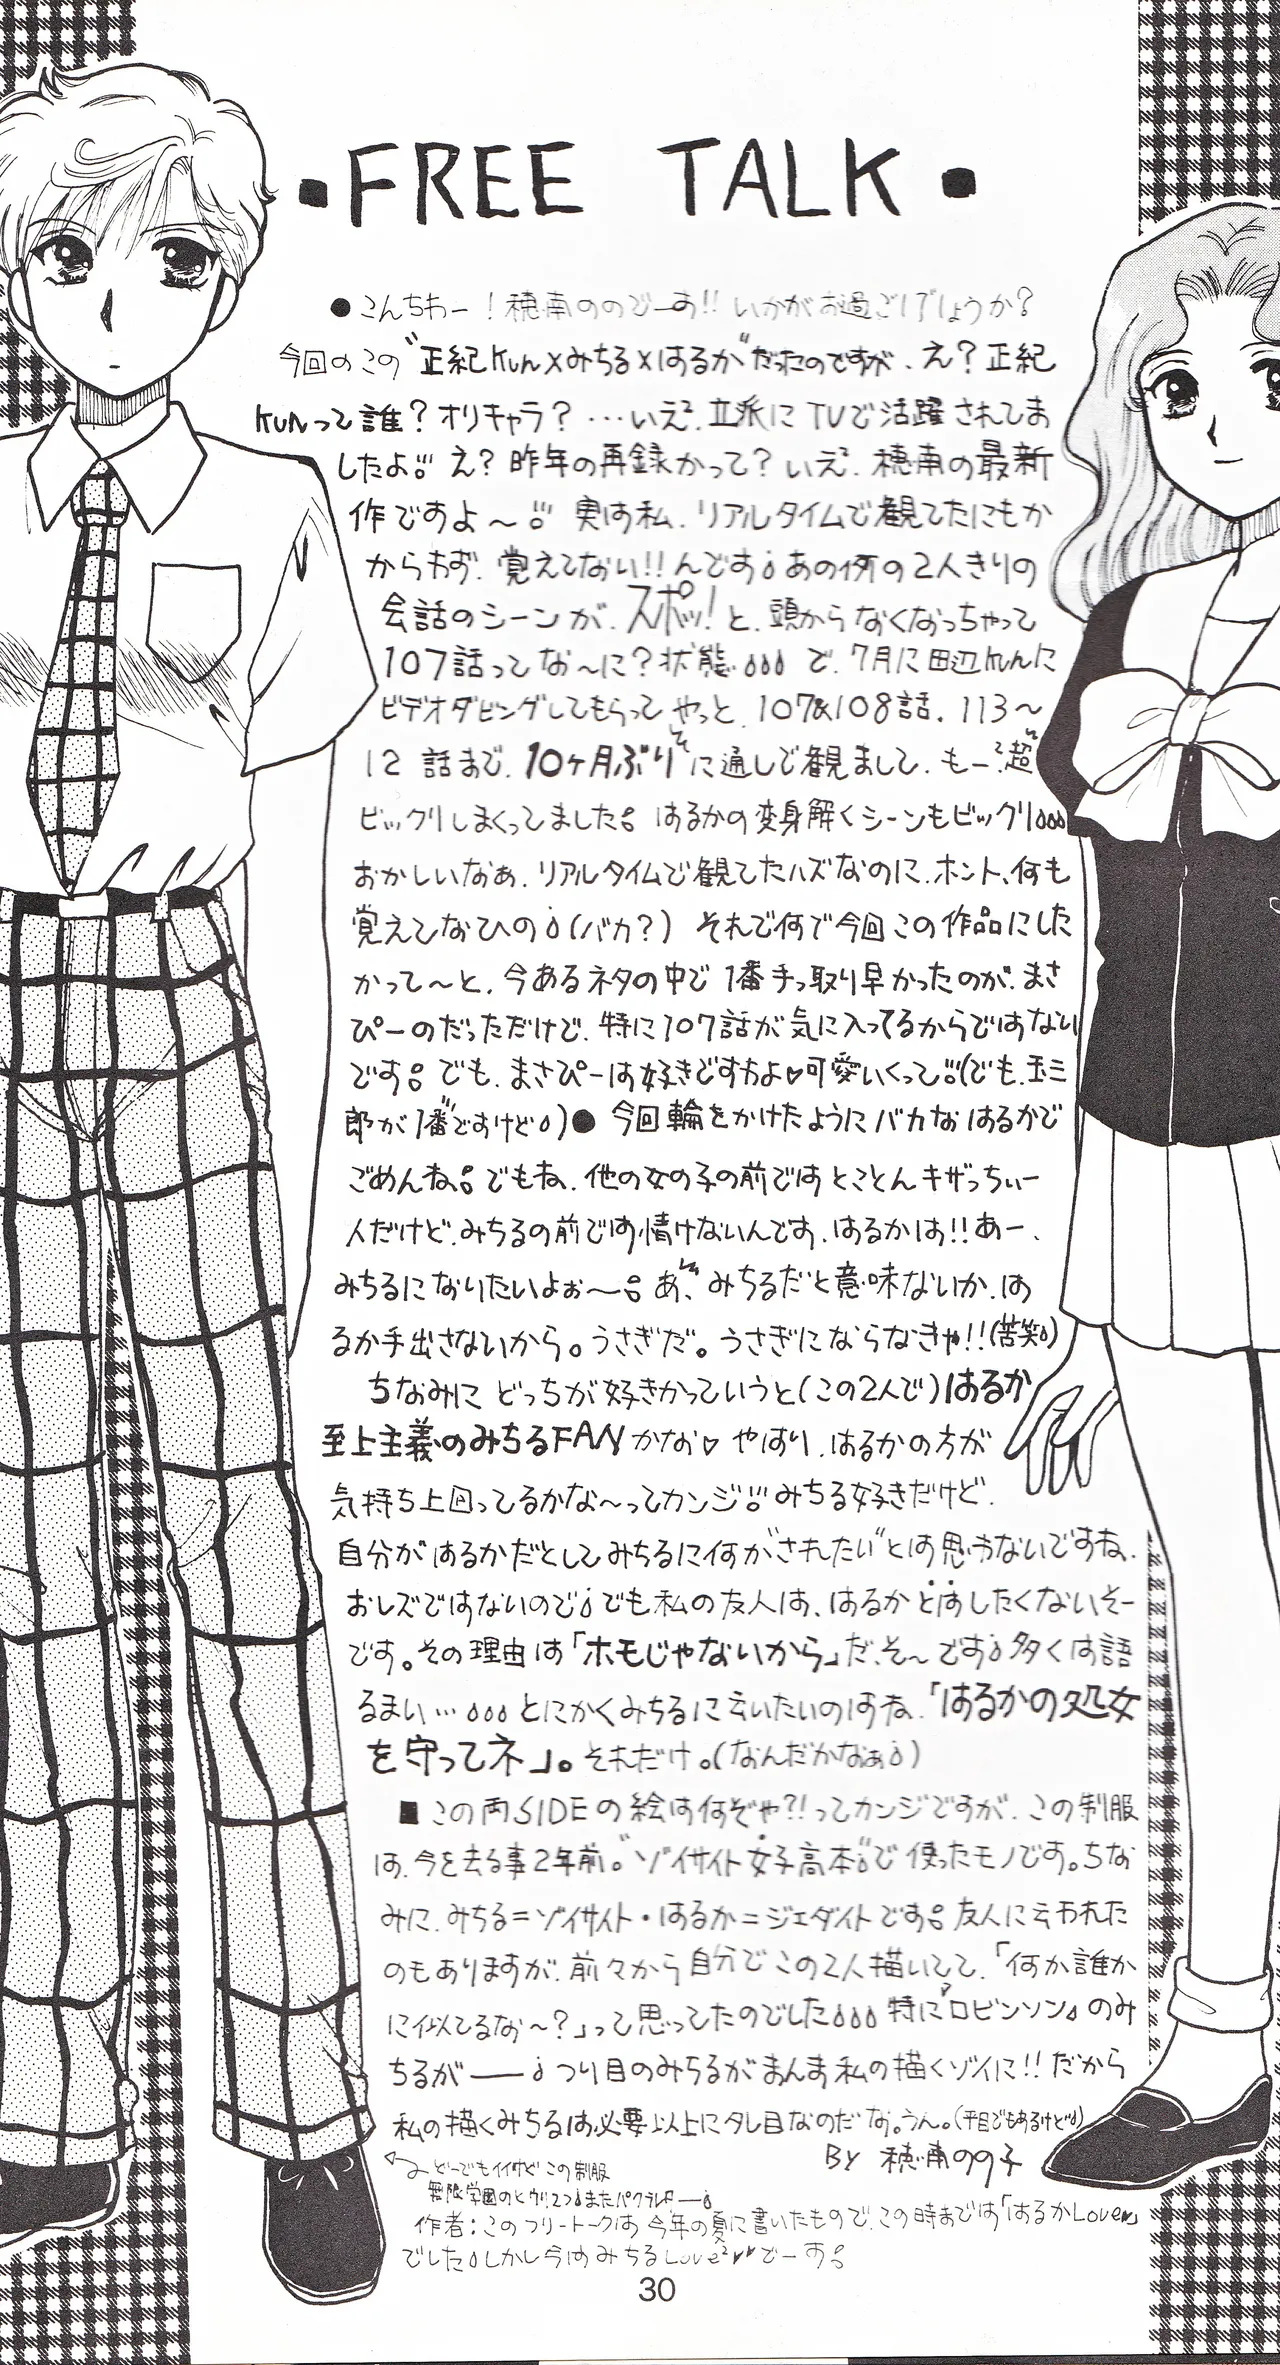 ■FREE TALK■
●こんちわー!穂南ののでーす!!いかがお過ごしでしょうか?
今回のこの"正紀kun×みちる×はるか"だったのですが、え?正紀
kunって誰?オリキャラ?…いえ²、立派にTVで活躍されてま
したよ!!え?昨年の再録かって?いえ²、穂南の最新
作ですよ〜!!実は私、リアルタイムで観てたにもか
からわず、覚えてない!!んです。あの例の2人きりの
会話のシーンが、スポッ!と、頭からなくなっちゃって
107話ってな〜に?状態。。。で、7月に田辺kunに
ビデオダビングしてもらってやっと、107&108話、113〜
12 話まで、10ヶ月ぶりに通しで観まして、もー、超
ビックリしまくってました。はるかの変身解くシーンもビックリ。。。
おかしいなぁ、リアルタイムで観てたハズなのに、ホント、何も
覚えてなひの。(バカ?) それで何で今回この作品にした
かって〜と、今あるネタの中で1番手っ取り早かったのが、まさ
ぴーのだっただけで、特に107話が気に入ってるからではない
です。でも、まさぴーは好きですよ♥可愛いくって!!(でも、玉三
郎が"1番"ですけど。)●今回輪をかけたようにバカなはるかで
ごめんね。でもね、他の女の子の前ではとことんキザっちぃー
人だけど、みちるの前では情けないんです、はるかは!!あー、
みちるになりたいよぉ〜。あ、みちるだと意味ないか、は
るか手出さないから。うさぎだ。うさぎにならなきゃ!!(苦笑)
ちなみにどっちが好きかっていうと(この2人で)はるか
至上主義のみちるFANかな♡やはり、はるかの方が
気持ち上回ってるかな〜ってカンジ!!みちる好きだけど、
自分がはるかだとしてみちるに何か"されたい"とは思わないですね、
おレズではないので。でも私の友人は、はるかとはしたくないそー
です。その理由は「ホモじゃないから」だ、そ〜です。多くは語
るまい…。。。とにかくみちるに言いたいのはね、「はるかの処女
を守ってネ」。それだけ。(なんだかなぁ。)
■この両SIDEの絵は何ぞや?!ってカンジですが、この制服
は、今を去る事2年前。"ゾイサイト女子高本"で使ったモノです。ちな
みに、みちる=ゾイサイト・はるか=ジェダイトです。友人に言われた
のもありますが、前々から自分でこの2人描いてて、「何か誰か
に似てるな〜?」って思ってたのでした。。。特に"ロビンソン"のみ
ちるが――。つり目のみちるがまんま私の描くゾイに!!だから
私の描くみちるは必要以上にタレ目なのだな。うん。(平目でもあるけど)
BY 穂南のの子
どーでもイイけどこの制服
無限学園のとウリ2つ。またパクラレ?――。
作者:このフリートークは今年の夏に書いたもので、この時までは「はるかLove♥」
でした。しかし今はみちるLove²♥♥でーす。
30